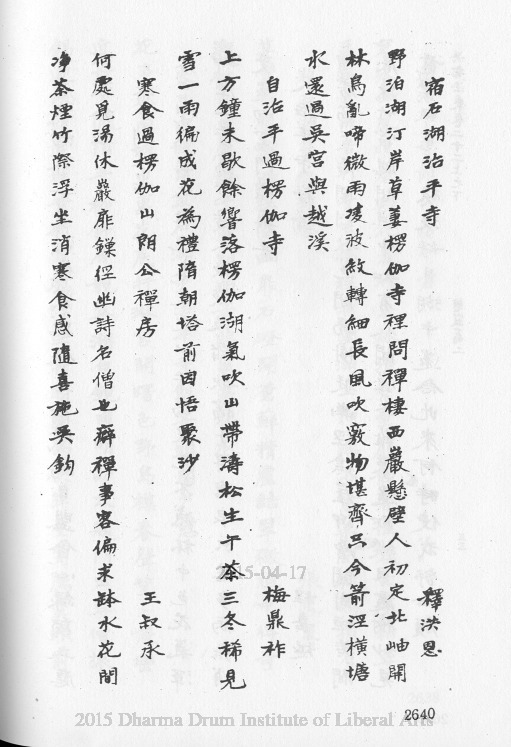 宿石湖治平寺　釋洪恩
野泊湖汀岸草萋楞伽寺裡問禪棲西巖懸壁人初定北岫開
林鳥亂啼微雨凌波紋轉細長風吹竅物堪齊只今箭涇橫塘
水還過吳宮與越溪
自治平過楞伽寺　梅鼎祚
上方鐘未歇餘響落楞伽湖氣吹山帶濤松生午茶三冬稀見
雪一雨徧成花為禮隋朝塔前因悟聚沙
寒食過楞伽山朗公禪房　王叔承
何處見湯休巖扉鎖徑幽詩名僧也癖禪事客偏求缽水花間
淨茶煙竹際浮坐消寒食感隨喜施吳鈎
2015-04-17
2640
2015 Dharma Drum Institute of Liberal Arts